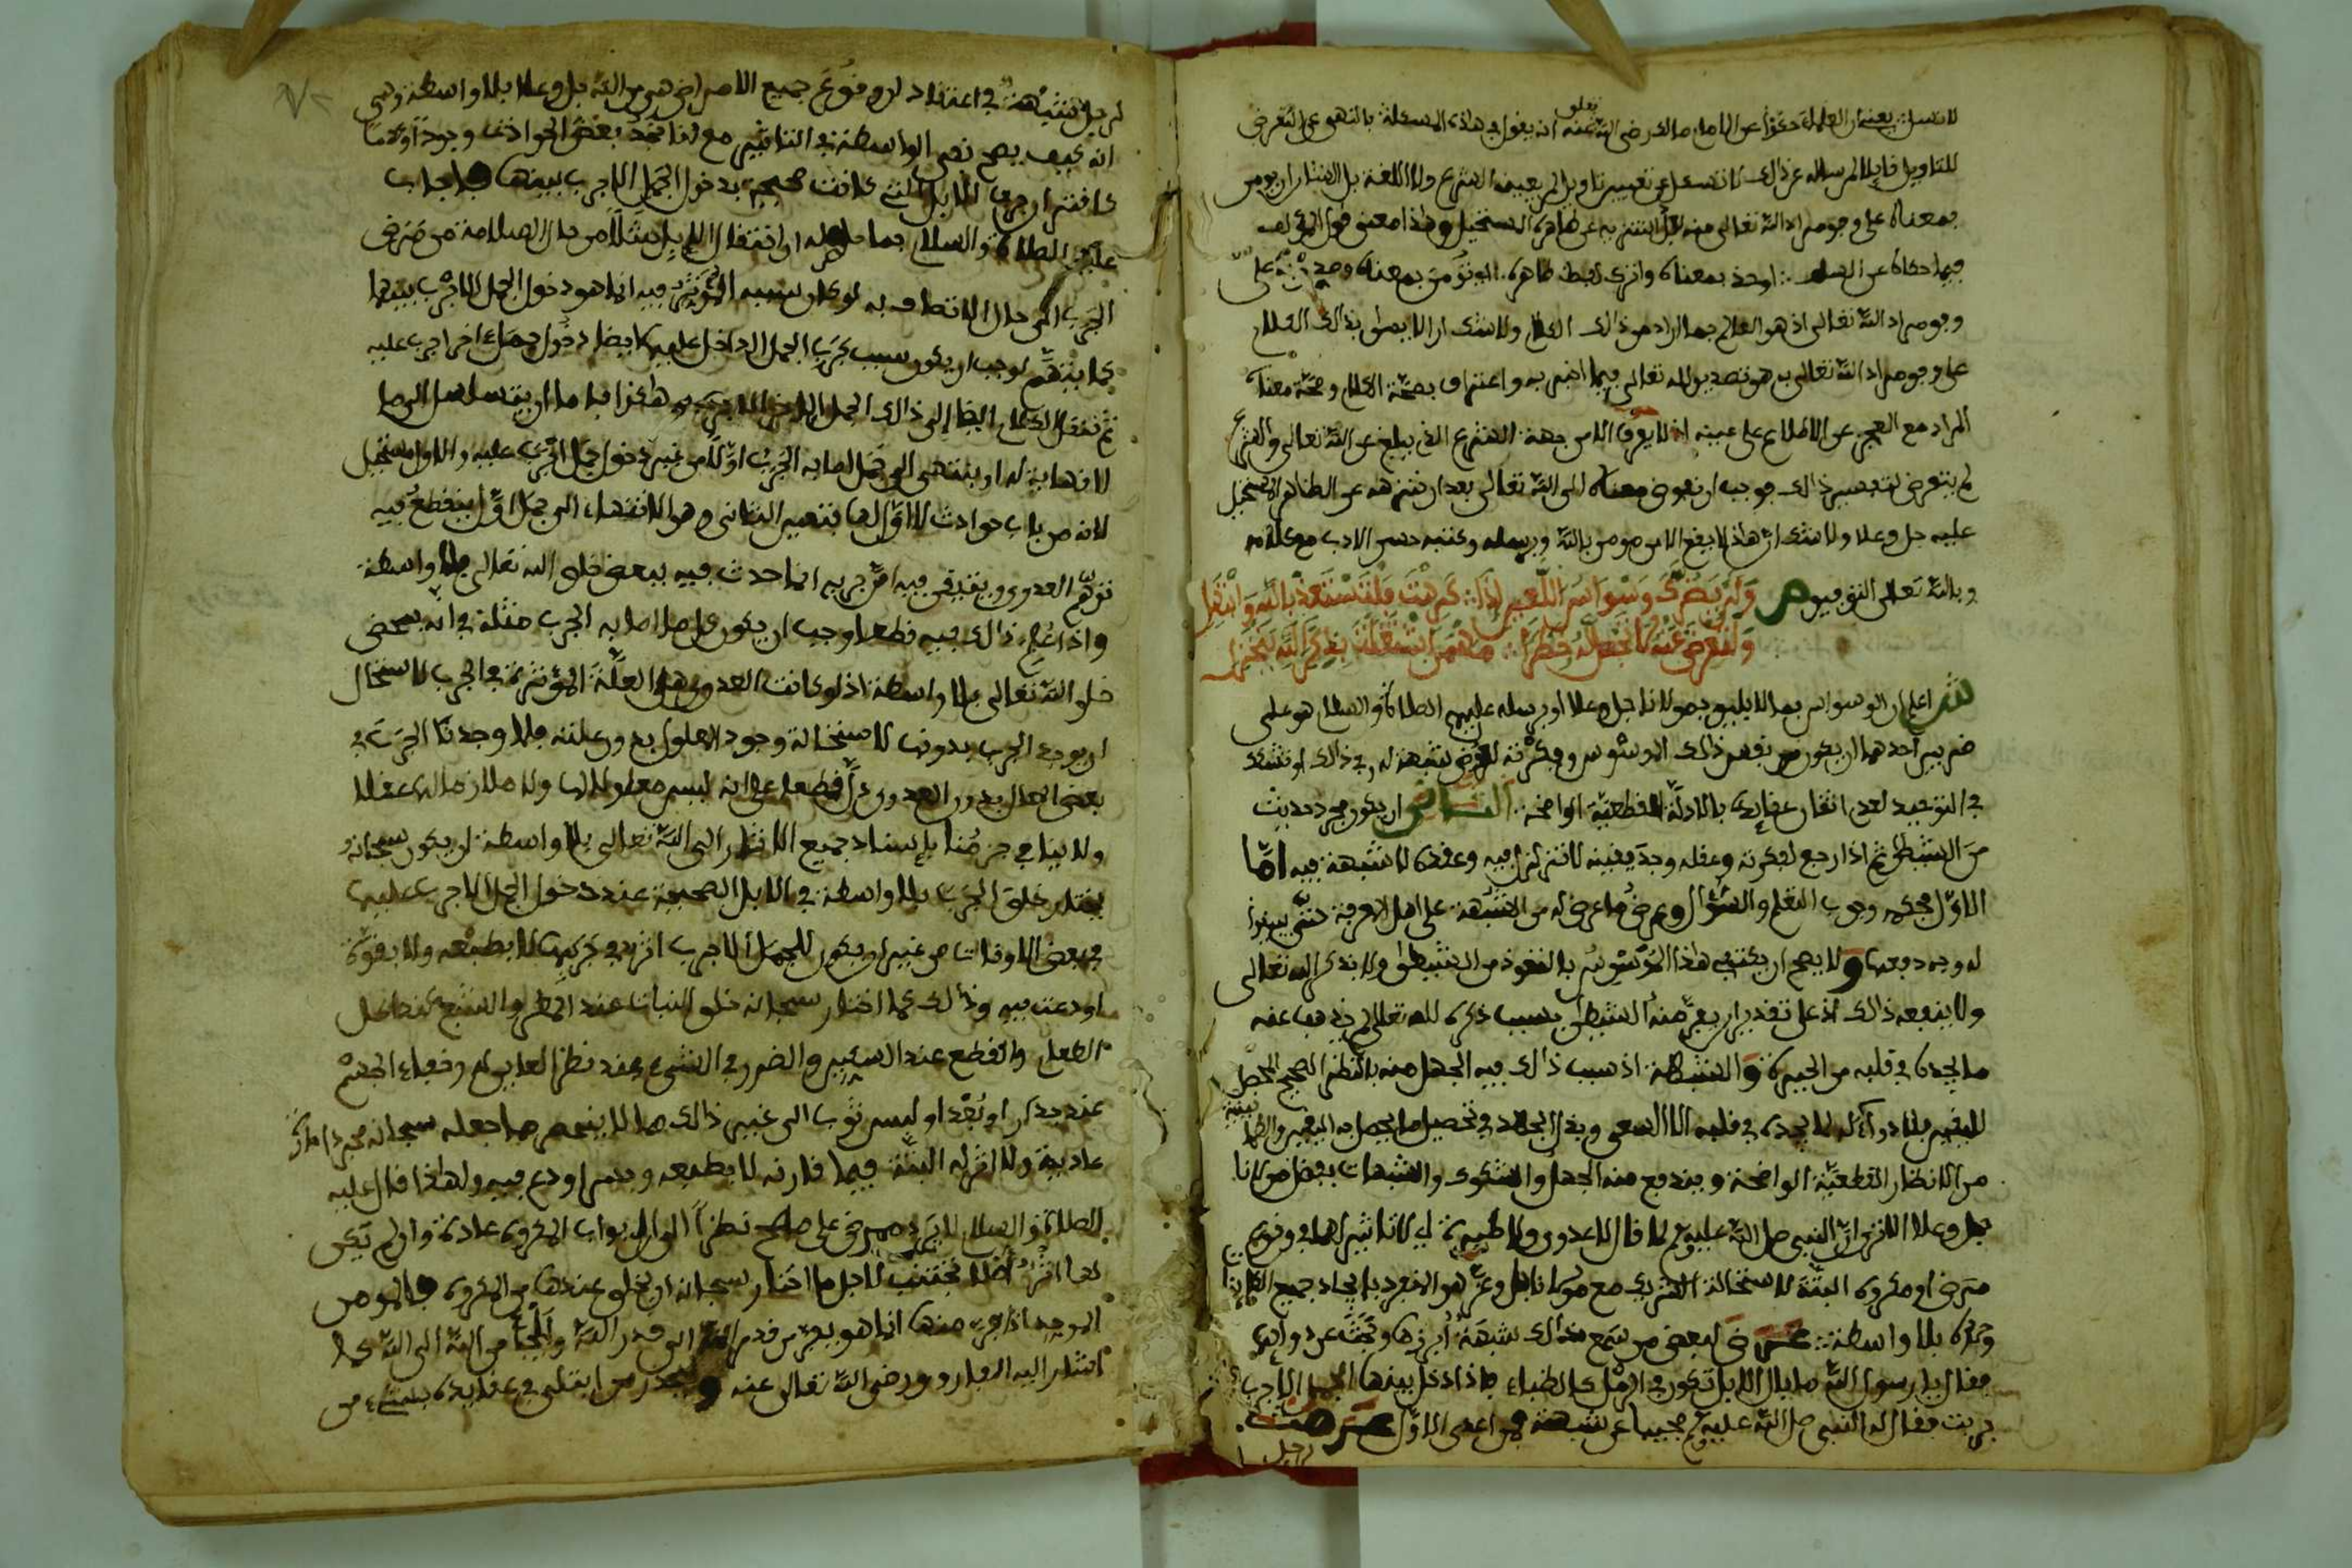 لا تسئل يعني ان العلماء حكوا عن الامام مالك رضي الله تعلى عنه انه يقول في هذه المسئلة بالنهي عن التعرض
للتاويل قايلا لمن ساله عن ذالك لا تسئل عن تعيين تاويل لم يعينه الشرع ولا اللغة بل الشان ان يومن
بمعناه على وجه مراد الله تعالى منه بعد التنزيه عن ظاهره المستحيل وهذا معنى قول المولف
فيما حكاه عن السلف اوخذ بمعناه واترك لفظ ظاهره
وجه مراد الله تعالى اذ هو العالم بما اراد من ذالك الكلام ولا شك ان الايمان بذالك الكلام
على وجه مراد الله تعالى به هو تصديق لله تعالى فيما اخبر به واعتراف بصحة الكلام وصحة معناه
المراد مع العجز عن الاطلاع على عينه اذ لا يعرف الا من جهة الشرع الذي يبلغ عن الله تعالى والشرع
لم يتعرض لتفسير ذالك فوجب ان نفوض معناه الى الله تعالى بعد ان ننزهه عن الظاهر المستحيل
عليه جل وعلا ولا شك ان هذا لا يقع الا من مومن بالله وبرسله وكتبه حسن الادب مع كلامه
وبالله تعالى التوفيق ص ولن يضرك وسواس اللعين اذا كرهت فلتستعذ بالله وانتهل
ولتعرض عنه لا تجعل له خطرا مهما اشتغلت بذكر الله ينخزل
ش اعلم ان الوسواس بما لا يليق بمولانا جل وعلا او برسله عليهم الصلاة والسلام هو على
ضربين احدهما ان يكون من نفس ذالك الموسوس وفكرته لعروض شبهة له في ذالك او تشكك
في التوحيد لعدم اتقان عقايده بالادلة القطعية الواضحة الثاني ان يكون مجرد حديث
من الشيطان ثم اذا رجع لفكرته وعقله وجد يقينه لا تزلزل فيه وعقده لا شبهة فيه اما
الاول فحكمه وجوب التعلم والسؤال وعرض ما عرض له من الشبهة على اهل المعرفة حتى يبينوا
له وجه دفعها ولا يصح ان يكتفي هذا الموسوس بالتعوذ من الشيطان ولا بذكر الله تعالى
ولا ينفعه ذالك اذ على تقدير ان يفر منه الشيطان بسبب ذكره لله تعالى لم يذهب عنه
ما يجده في قلبه من الحيرة والشبهة اذ سبب ذالك فيه الجهل منه بالنظر الصحيح المحصل
لليقين فلا دواء له لما يجده في قلبه الا السعي وبذل الجهد في تحصيل ما يحصل به اليقين والطمانينة
من الانظار القطعية الواضحة ويندفع منه الجهل والشكوك والشبهات بفضل مولانا
جل وعلا الا ترى ان النبي صلى الله عليه وسلم لما قال لا عدوى ولا طيرة اي لا تاثير لهما في وقوع
مرض او مكروه البتة لاستحالة الشريك مع مولانا جل وعز هو المنفرد بايجاد جميع الكاينات
وحده بلا واسطة عرض لبعض من سمع ذالك شبهة ابرزها وبحث عن دوائها
فقال يا رسول الله ما بال الابل تكون في الرمل كالظباء فاذا دخل بينها الجمل الاجرب
جربت فقال له النبي صلى الله عليه وسلم مجيبا عن شبهته فمن اعدى الاول عرضت
لرجل
لرجل شبهة في اعتقاد ان وقوع جميع الامراض هو من الله جل وعلا بلا واسطة وهي
انه كيف يصح نفي الواسطة في التاثير مع انا نجد بعض الحوادث وجودا وعدما
كاقتران جرب الابل التي كانت صحيحة بدخول الجمل الاجرب بينها فاجاب
عليه الصلاة والسلام بما حاصله ان انتقال الابل مثلا من حال السلامة من مرض
الجرب الى حال الاتصاف به لو كان سببه المؤثر فيه انما هو دخول الجمل الاجرب بينها
كما يتوهم لوجب ان يكون سبب جرب الجمل الداخل عليها ايضا دخول جمل اخر اجرب عليه
ثم ننقل الكلام ايضا الى ذالك الجمل الاخر وهكذا فاما ان يتسلسل الى ما
لا نهاية له او ينتهي الى جمل اصابه الجرب اولا من غير دخول جمل اجرب عليه والاول مستحيل
لانه من باب حوادث لا اول لها فتعين الثاني وهو الانتهاء الى جمل اول ينقطع فيه
توهم العدوى ويتيقن فيه ان جربه انما حدث فيه بمحض خلق الله تعالى بلا واسطة
واذا علم ذالك فيه قطعا وجب ان يكون كل ما اصابه الجرب مثله في انه بمحض
خلق الله تعالى بلا واسطة اذ لو كانت العدوى هي العلة المؤثرة في الجرب لاستحال
ان يوجد الجرب بدونها لاستحالة وجود المعلول بدون علته فلما وجدنا الجرب في
بعض المحال بدون العدوى دل قطعا على انه ليس معلولا لها ولا ملازما لها عقلا
ولا ينافي جزمنا باسناد جميع الاثار الى الله تعالى بلا واسطة ان يكون سبحانه
يختار خلق الجرب بلا واسطة في الابل الصحيحة عند دخول الجمل الاجرب عليها
في بعض الاوقات من غير ان يكون للجمل الاجرب اثر في جربها لا بطبعه ولا بقوة
اودعت فيه وذالك كما اختار سبحانه خلق النبات عند المطر والشبع عند اكل
الطعام والقطع عند السكين والضرر في الشيء عند نظر العاين له ودفع الحر
عند جدار او بعد او لبس ثوب الى غير ذالك مما لا ينحصر مما جعله سبحانه مجرد امارة
عادية ولا اثر له البتة فيما قارنه لا بطبعه ولا بسر اودع فيه ولهذا قال عليه
الصلاة والسلام لا يرد ممرض على مصح نظرا الى ابواب المكروه عادة وان لم يكن
لها اثر اصلا تجتنب لاجل ما اختار سبحانه ان يخلق عندها من المكروه فالمومن
الموحد اذا فر منها انما هو يفر من قدر الله الى قدر الله والجا من الله الى الله كما
اشار اليه الفاروق رضي الله تعالى عنه وليحذر من ابتلي في عقايده بشيء من